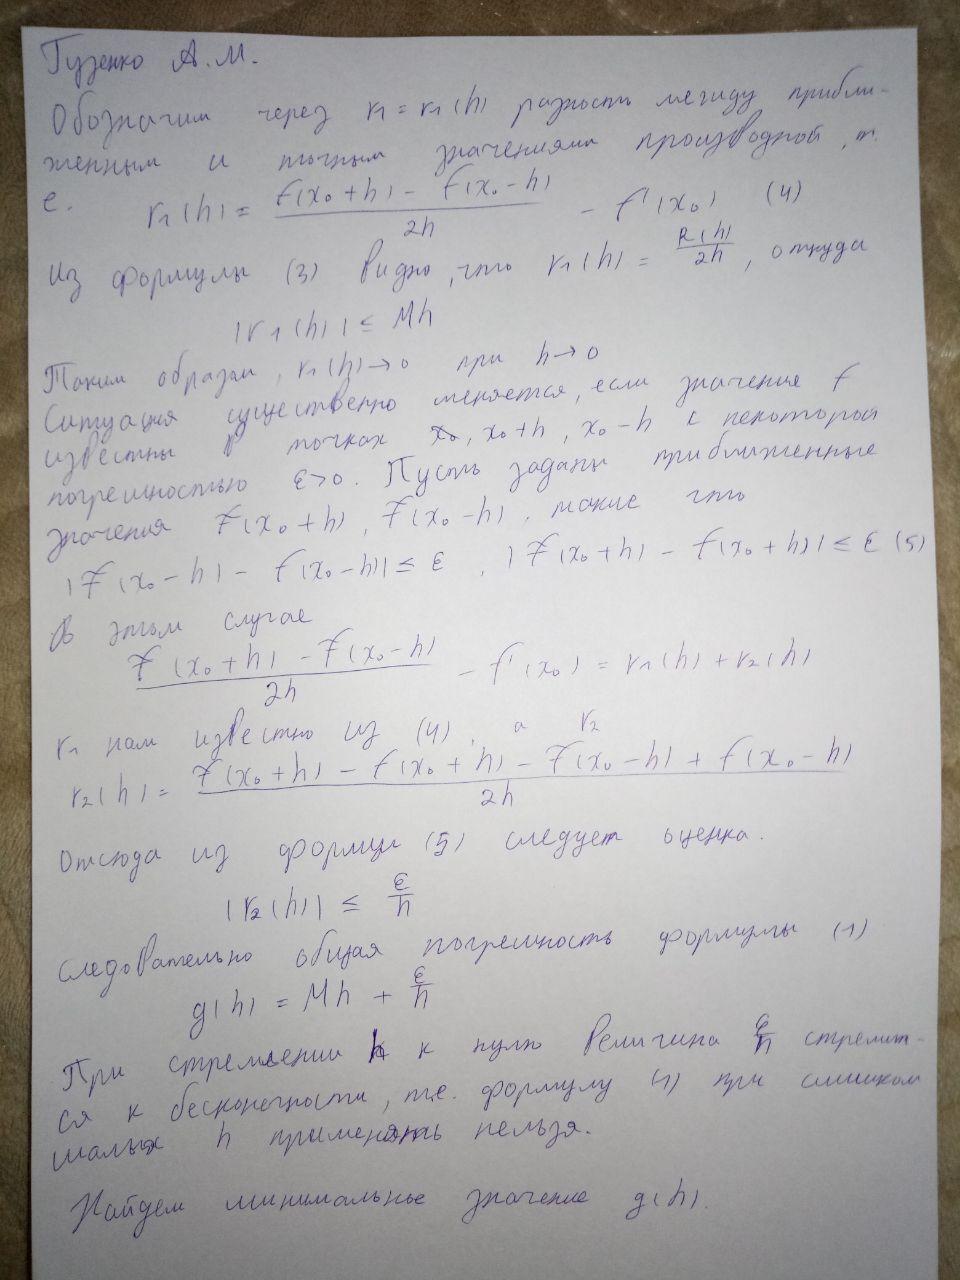 Гузенко А.М.
Обозначим через r₁ = r₁(h) разность между прибли-
женным и точным значениями производной, т.
е. r₁(h) = (f(x₀+h) - f(x₀-h))/2h - f'(x₀) (4)
Из формулы (3) видно, что r₁(h) = R(h)/2h, откуда
|r₁(h)| ≤ Mh
Таким образом, r₁(h) → 0 при h → 0
Ситуация существенно меняется, если значения f
известны в точках x₀, x₀+h, x₀-h с некоторой
погрешностью ε>0. Пусть заданы приближенные
значения f̃(x₀+h), f̃(x₀-h), такие что
|f̃(x₀-h) - f(x₀-h)| ≤ ε, |f̃(x₀+h) - f(x₀+h)| ≤ ε (5)
В этом случае
(f̃(x₀+h) - f̃(x₀-h))/2h - f'(x₀) = r₁(h) + r₂(h)
r₁ нам известно из (4), а r₂
r₂(h) = (f̃(x₀+h) - f(x₀+h) - f̃(x₀-h) + f(x₀-h))/2h
Отсюда из формул (5) следует оценка.
|r₂(h)| ≤ ε/h
Следовательно общая погрешность формулы (1)
g(h) = Mh + ε/h
При стремлении h к нулю величина ε/h стремит-
ся к бесконечности, т.е. формулу (1) при слишком
малых h применять нельзя.
Найдем минимальное значение g(h).